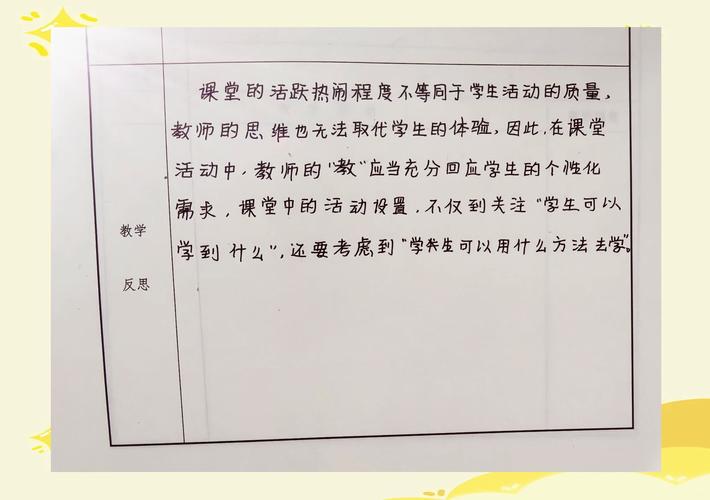 课堂的活跃热闹程度不等同于学生活动的质量，
教师的思维也无法取代学生的体验，因此，在课堂
活动中，教师的"教"应当充分回应学生的个性化
需求，课堂中的活动设置，不仅到关注"学生可以
学到什么"，还要考虑到"学生可以用什么方法去学"。
教学
反思